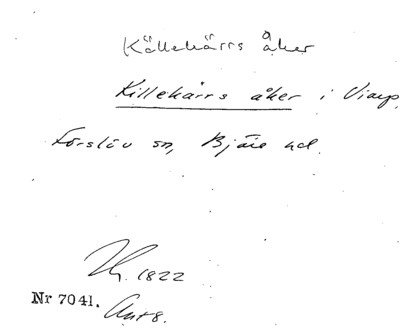 Källekärrs åker
Killekärrs åker i Viarp,
Förslöv sn, Bjäre hd.
1822
Nr 7041.